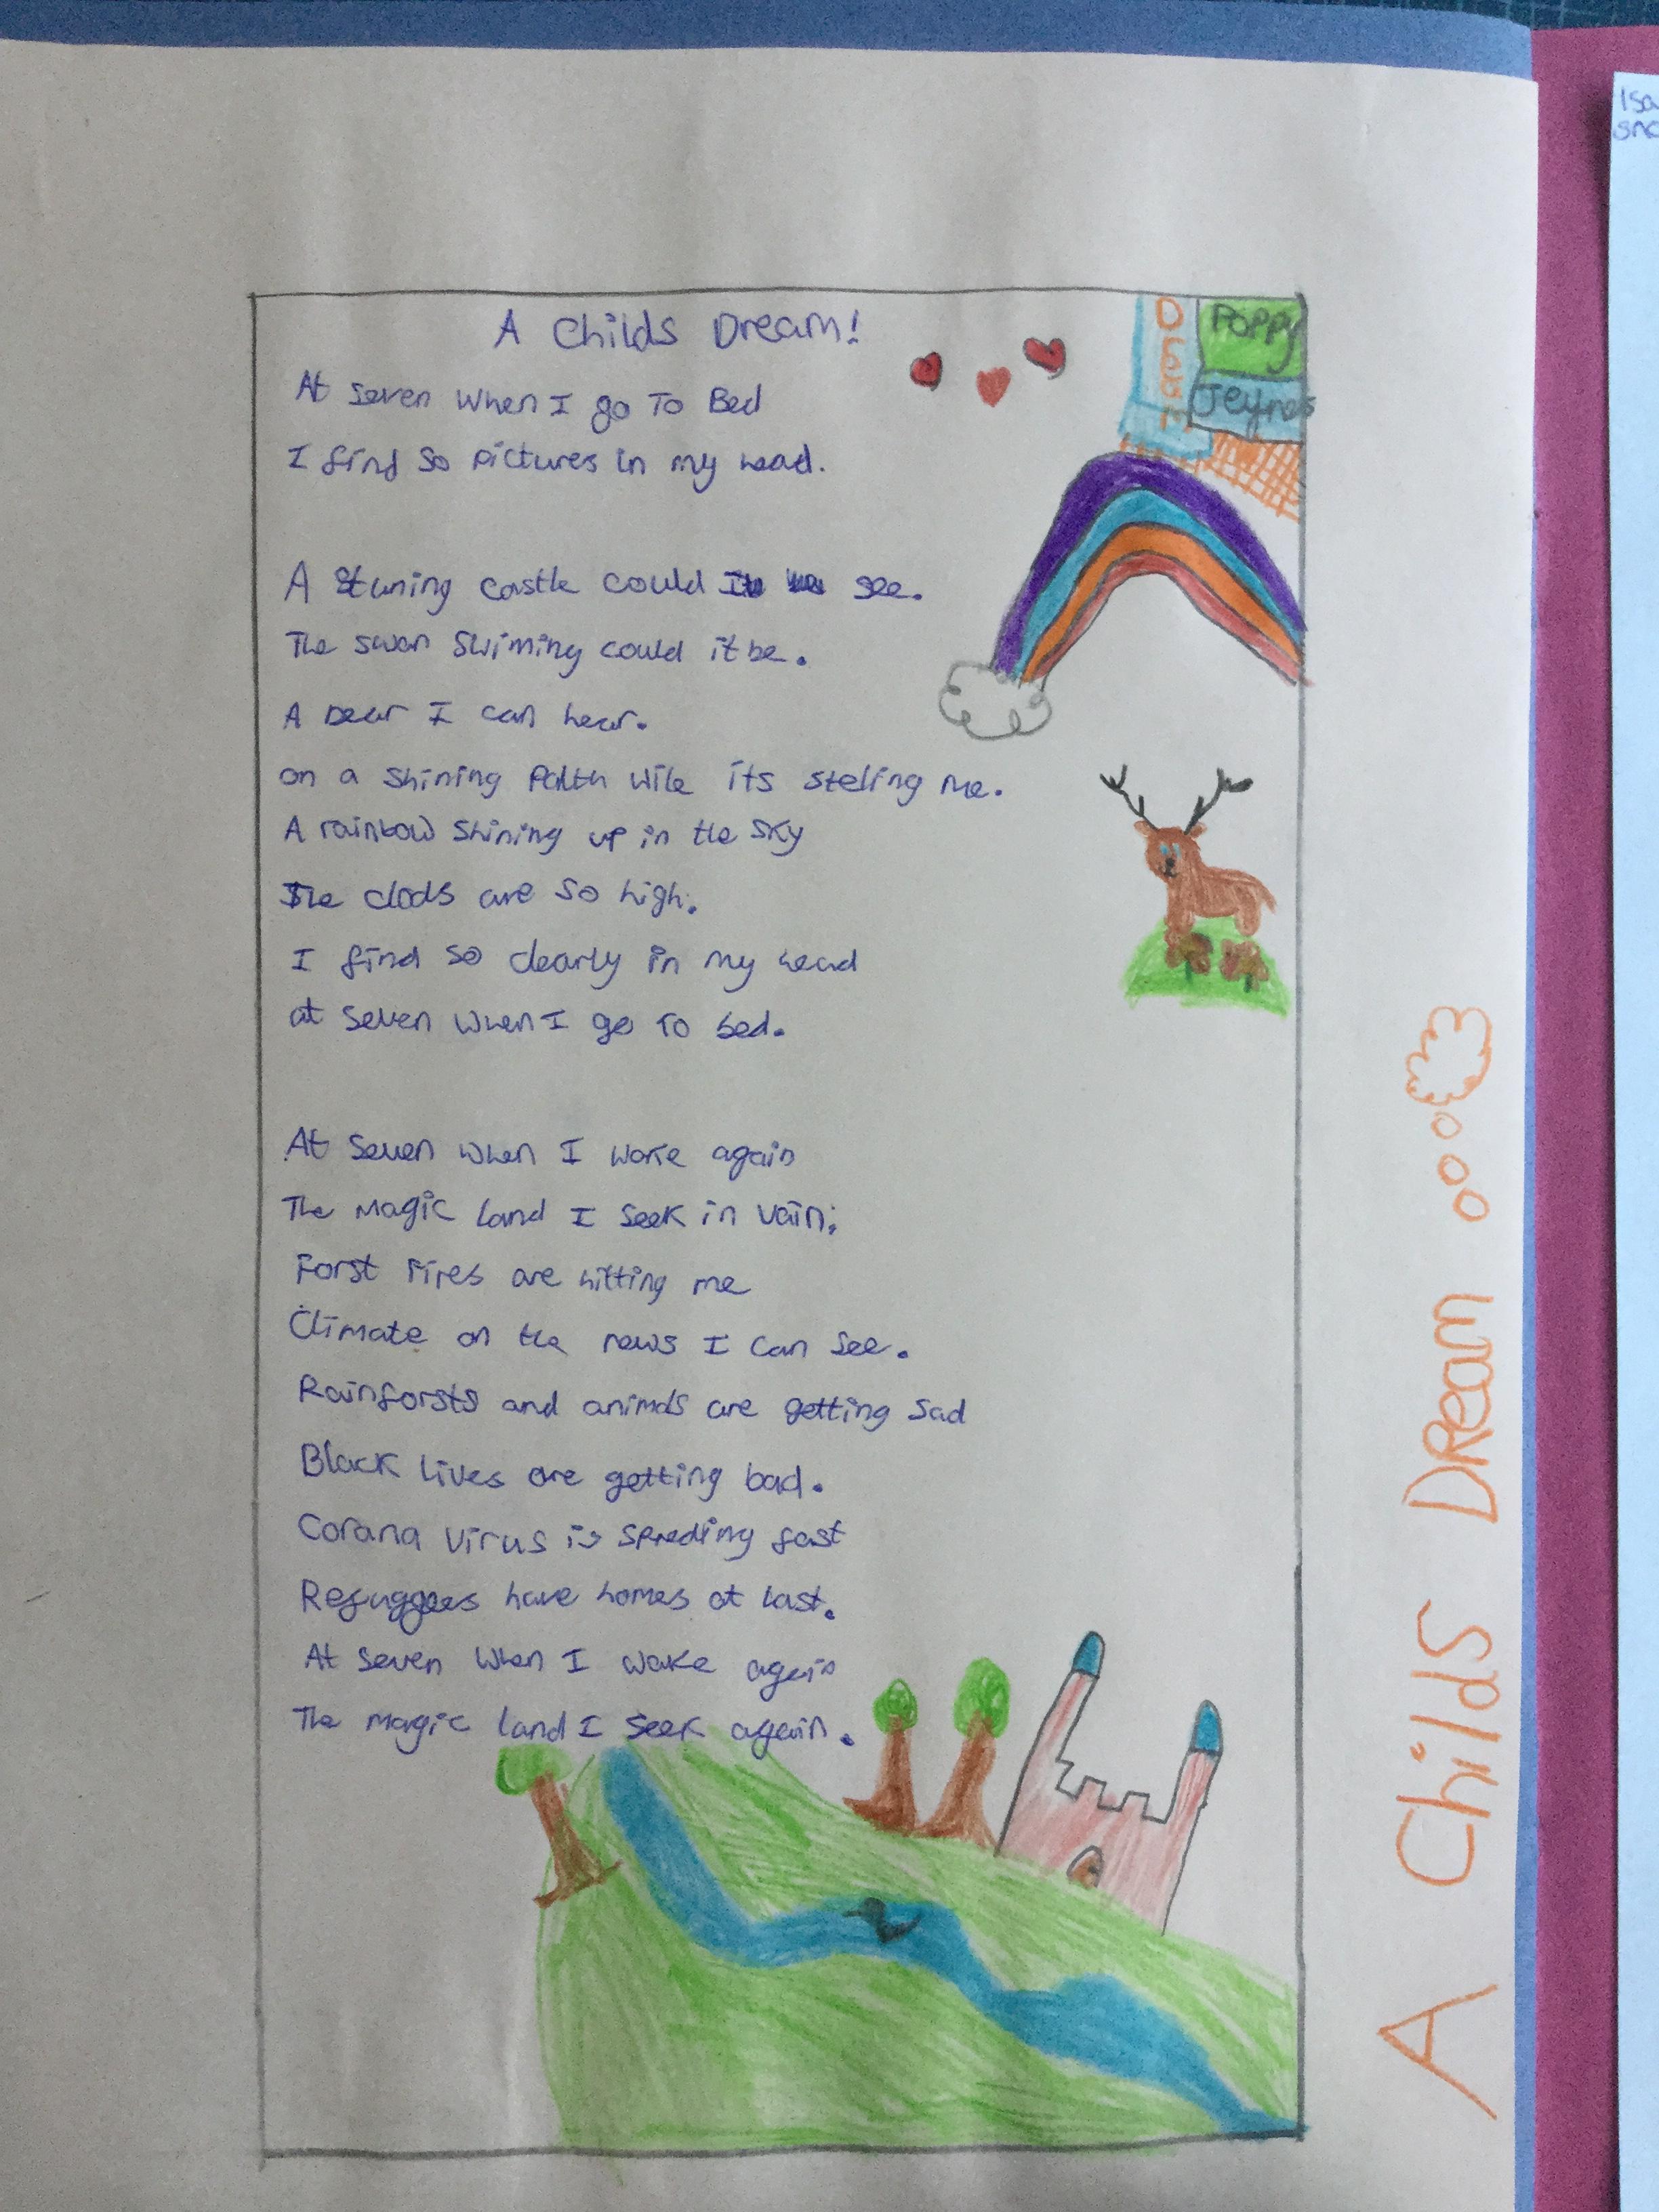 A Childs Dream!
At seven when I go To Bed
I find so pictures in my head.
A stuning castle could see.
The swan swiming could it be.
A Dear I can hear.
on a shining Path wile its steling me.
A rainbow shining up in the sky
The clods are so high.
I find so clearly in my head
at seven when I go to bed.
At seven when I wake again
The magic land I seek in vain;
Forst Fires are hitting me
Climate on the news I can see.
Rainforsts and animals are getting sad
Black lives are getting bad.
Corana virus is spreding fast
Refuggees have homes at last.
At seven when I wake again
The magic land I seek again.
Poppy
Jeynes
A Childs Dream
Isa